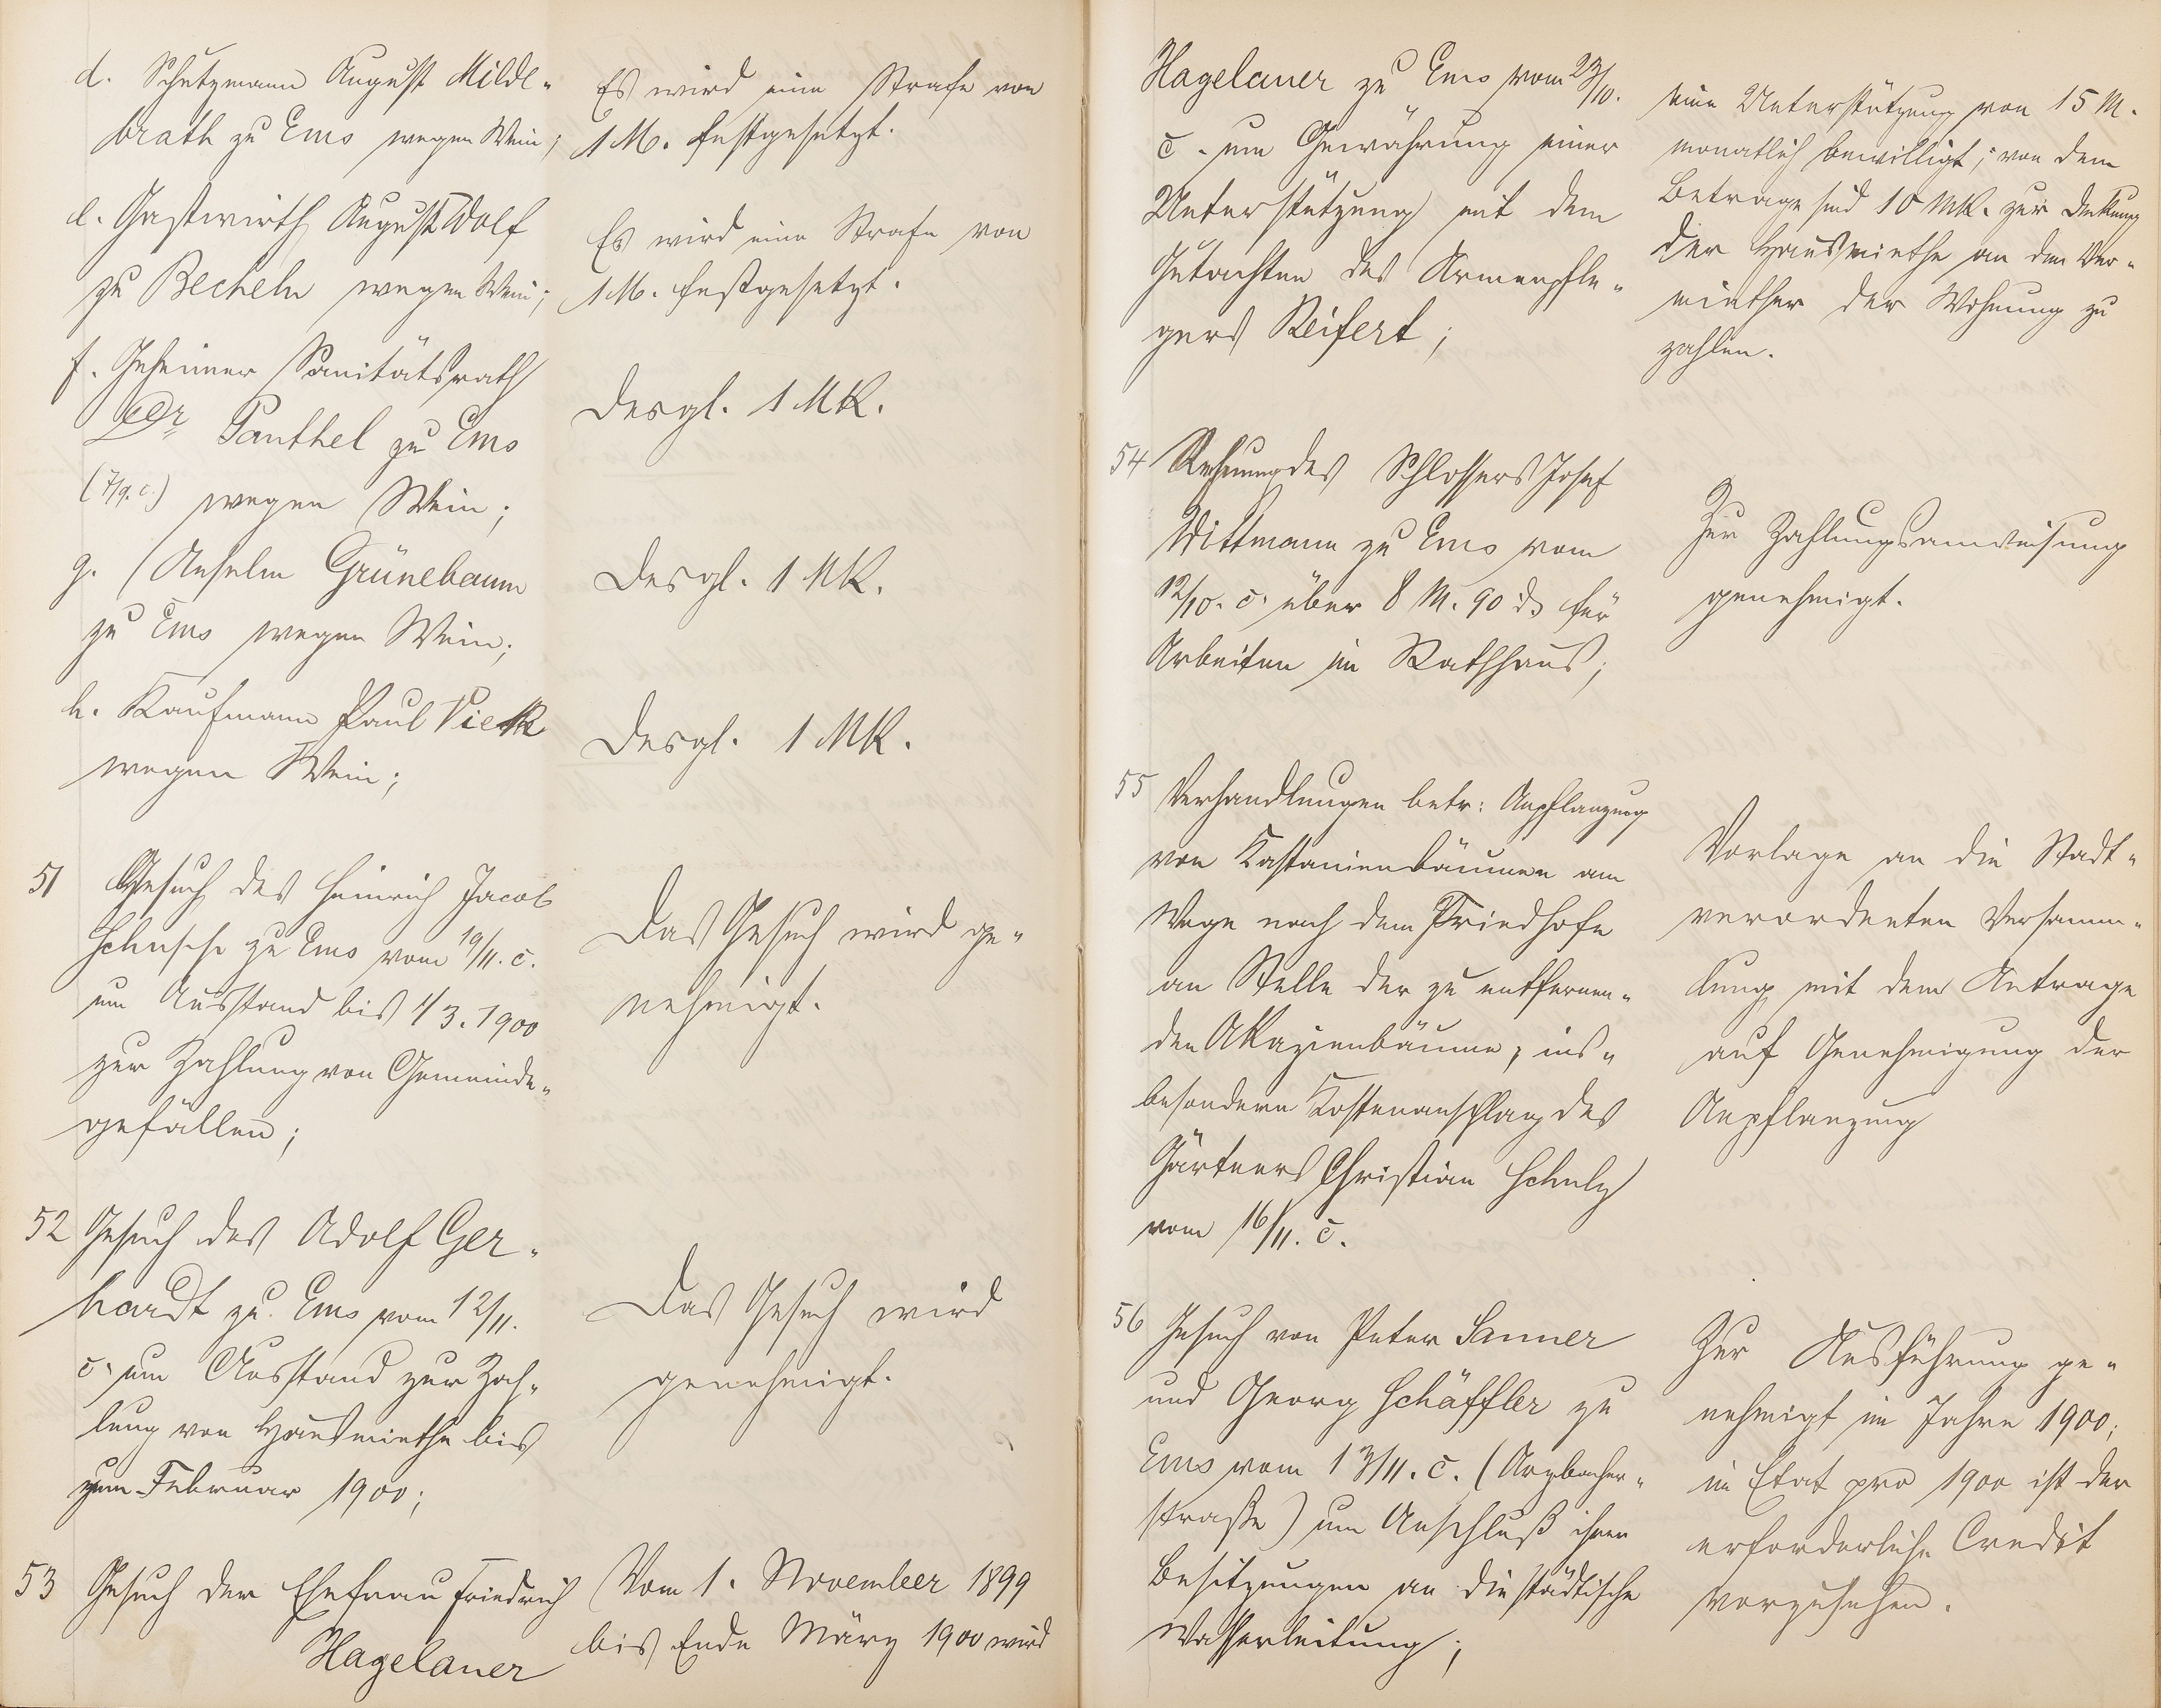 d. Schutzmann August Milde-
brath zu Ems wegen Wein;
Es wird eine Strafe von
1 M. festgesetzt.
e. Gastwirth August Wolf
zu Becheln wegen Wein;
Es wird eine Strafe von
1 M. festgesetzt.
f. Geheimer Sanitätsrath
Dr Panthel zu Ems
(7/9. c.) wegen Wein;
Desgl. 1 Mk.
g. Anselm Grünebaum
zu Ems wegen Wein;
Desgl. 1 Mk.
h. Kaufmann Paul Vieth
wegen Wein;
Desgl. 1 Mk.
51 Gesuch des Heinrich Jacob
zu Ems vom 19/11. c.
um Ausstand bis 1/3. 1900
zur Zahlung von Gemeinde-
gefällen;
Das Gesuch wird ge-
nehmigt.
52 Gesuch des Adolf Ger-
hardt zu Ems vom 12/11.
c. um Ausstand zur Zah-
lung von Hausmiethe bis
zum Februar 1900;
Das Gesuch wird
genehmigt.
53 Gesuch der Ehefrau Friedrich
Hagelauer
Vom 1. November 1899
bis Ende März 1900 wird
Hagelauer zu Ems vom 23/10.
c. um Gewährung einer
Unterstützung mit dem
Gutachten des Armenpfle-
gers Reifert;
eine Unterstützung von 15 M.
monatlich bewilligt; von dem
Betrage sind 10 Mk. zur Deckung
der Hausmiethe an den Ver-
miether der Wohnung zu
zahlen.
54 Rechnung des Schlossers Josef
Wittmann zu Ems vom
12/10. c. über 8 M. 90 ₰ für
Arbeiten im Rathhaus;
Zur Zahlungsanweisung
genehmigt.
55 Verhandlungen betr: Anpflanzung
von Kastanienbäumen am
Wege nach dem Friedhofe
an Stelle der zu entfernen-
den Akazienbäume, ins-
besondere Kostenanschlag des
Gärtners Christian Schulz
vom 16/11. c.
Vorlage an die Stadt-
verordneten Versamm-
lung mit dem Antrage
auf Genehmigung der
Anpflanzung
56 Gesuch von Peter Sanner
und Georg Schäffler zu
Ems vom 13/11. c. (Arzbacher-
straße) um Anschluß ihrer
Besitzungen an die städtische
Wasserleitung;
Zur Ausführung ge-
nehmigt im Jahre 1900;
im Etat pro 1900 ist der
erforderliche Credit
vorzusehen.